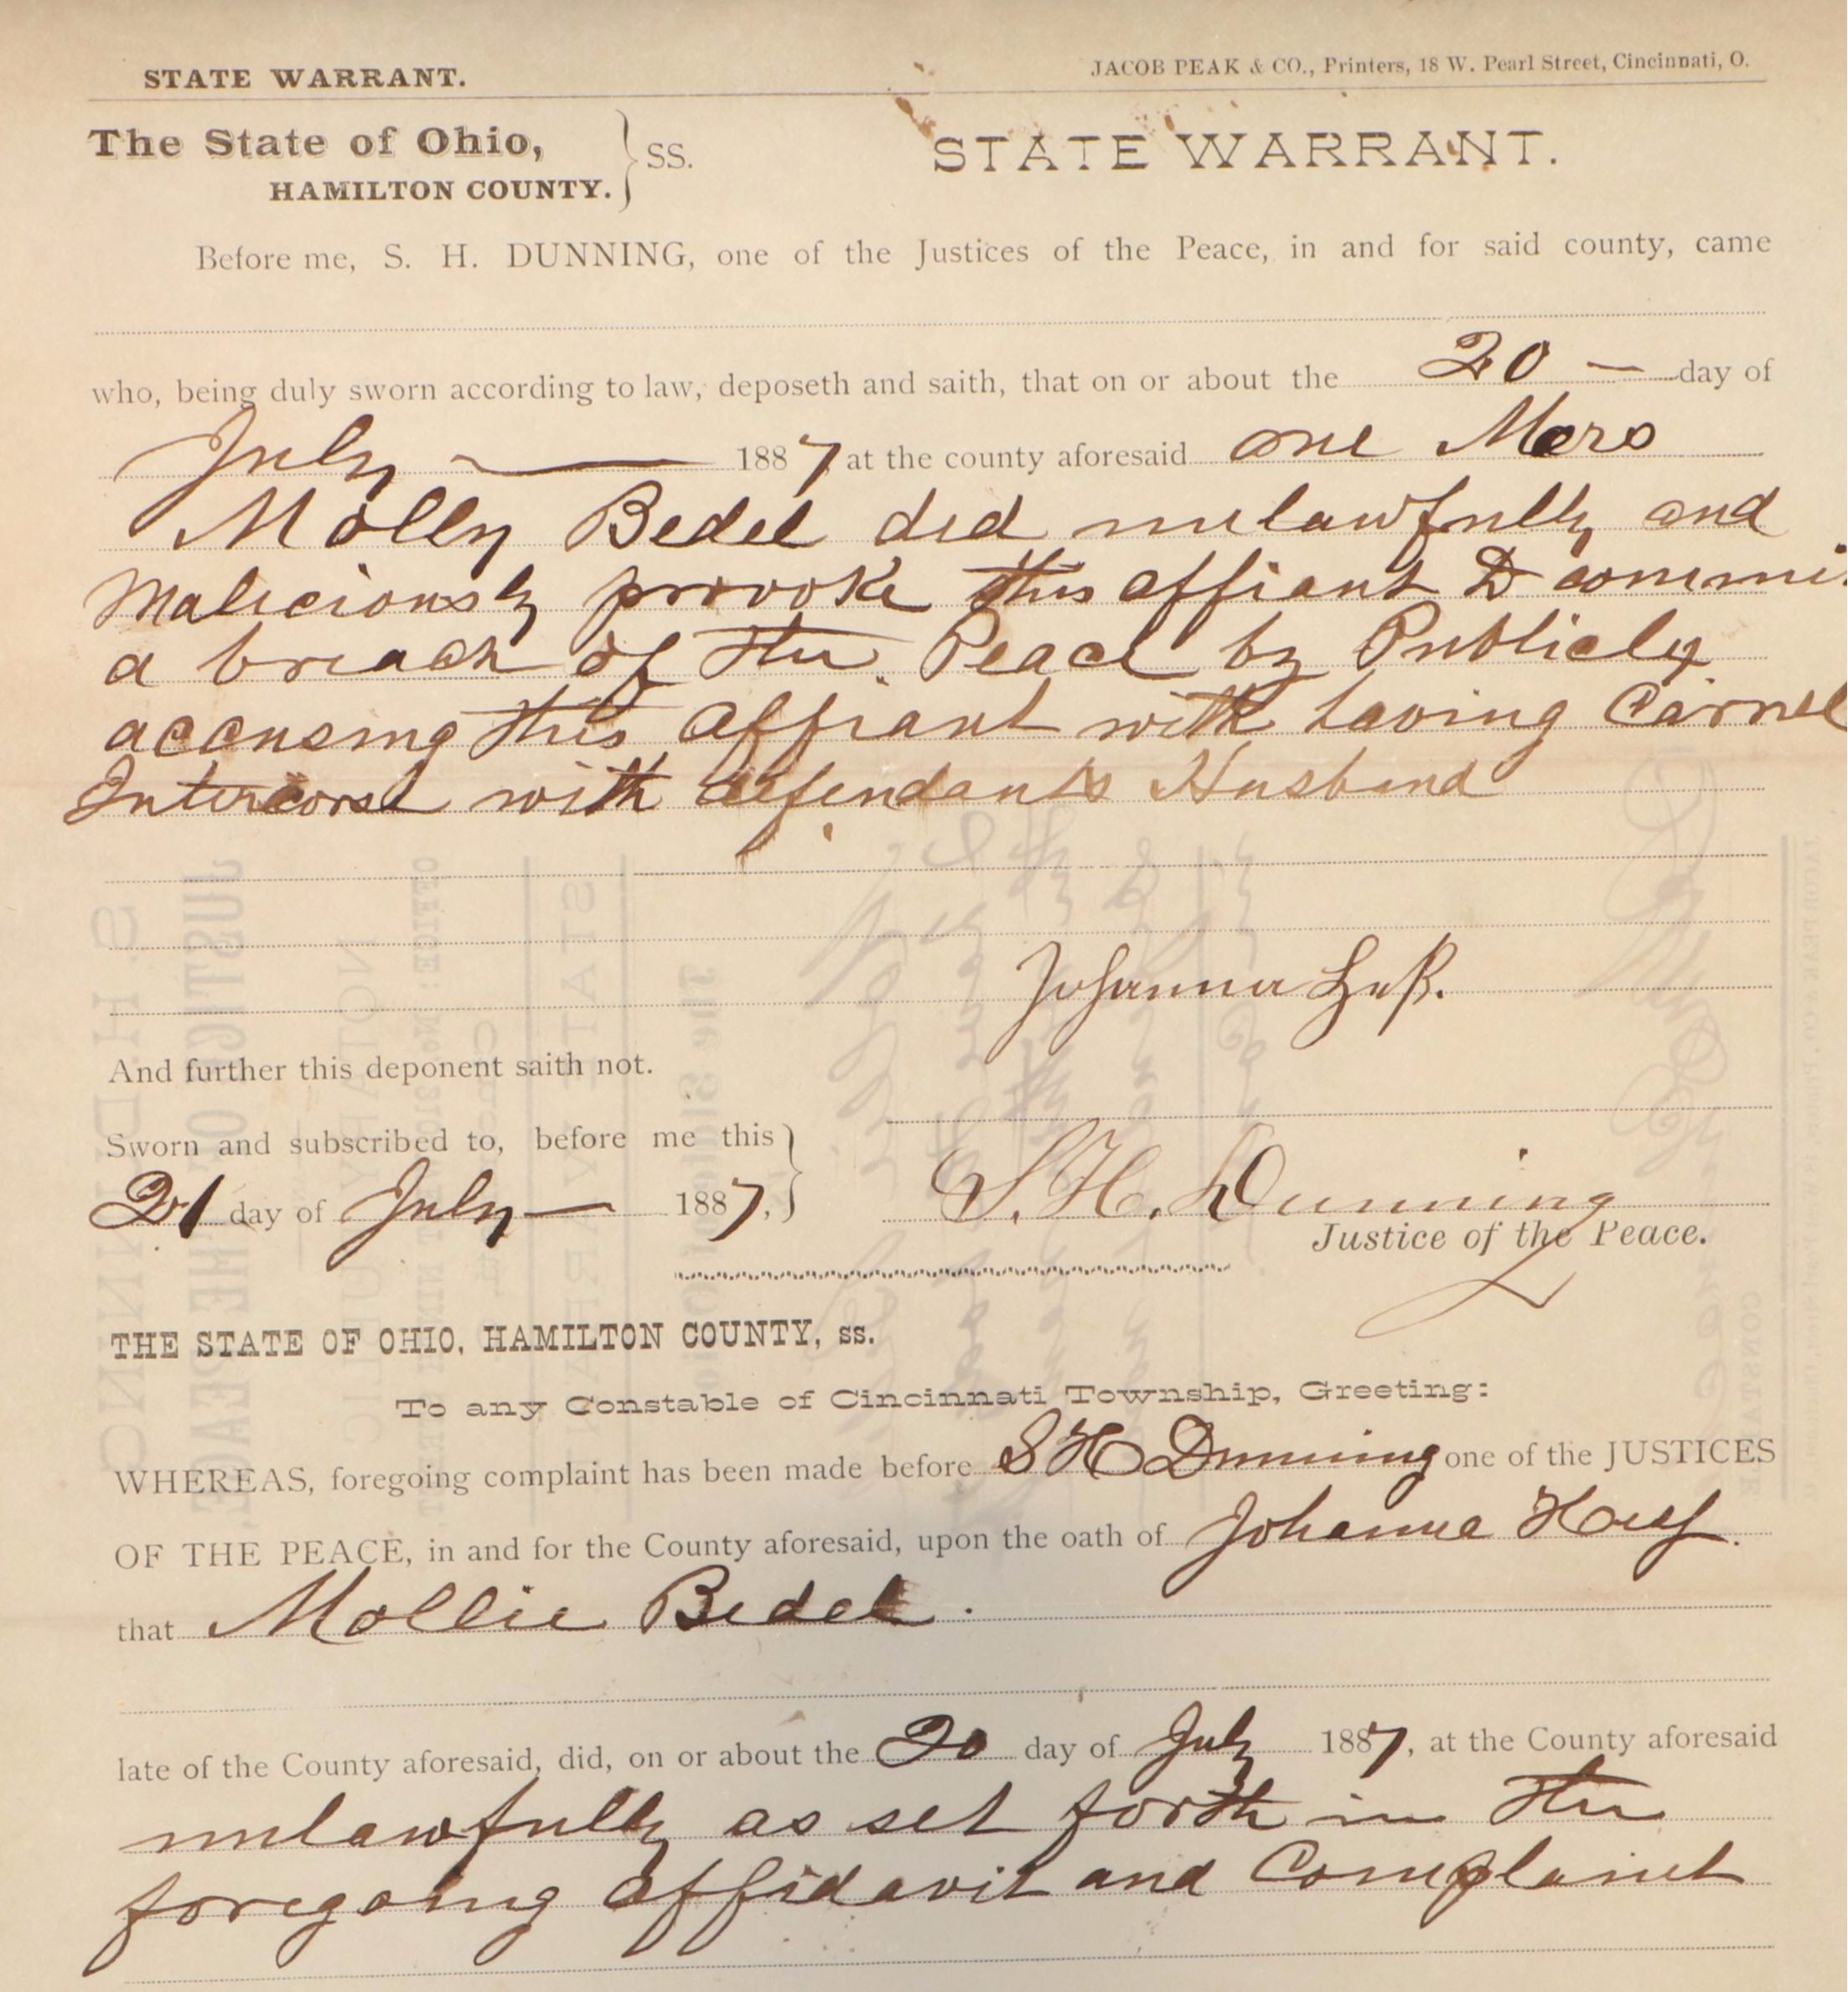 STATE WARRANT.
JACOB PEAK & CO., Printers, 18 W. Pearl Street, Cincinnati, O.
The State of Ohio,
HAMILTON COUNTY. } SS.
STATE WARRANT.
Before me, S. H. DUNNING, one of the Justices of the Peace, in and for said county, came
who, being duly sworn according to law, deposeth and saith, that on or about the 20 — day of
July — 1887, at the county aforesaid one Mers
Molly Bedel did unlawfully and
Maliciously provoke this affiant to commit
a breach of the Peace by Publicly
accusing this affiant with having Carnel
Intercorse with defendants Husband
Johanna Huß.
And further this deponent saith not.
Sworn and subscribed to, before me this
21 day of July — 1887, }
S. H. Dunning
Justice of the Peace.
THE STATE OF OHIO, HAMILTON COUNTY, ss.
To any Constable of Cincinnati Township, Greeting:
WHEREAS, foregoing complaint has been made before S H Dunning one of the JUSTICES
OF THE PEACE, in and for the County aforesaid, upon the oath of Johanna Huss.
that Mollie Bedel.
late of the County aforesaid, did, on or about the 20 day of July 1887, at the County aforesaid
unlawfully as set forth in the
foregoing affidavit and Complaint